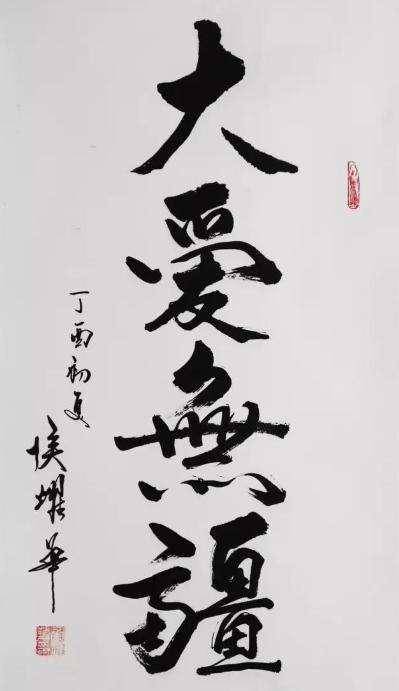 大愛無疆
丁酉初夏
侯耀華